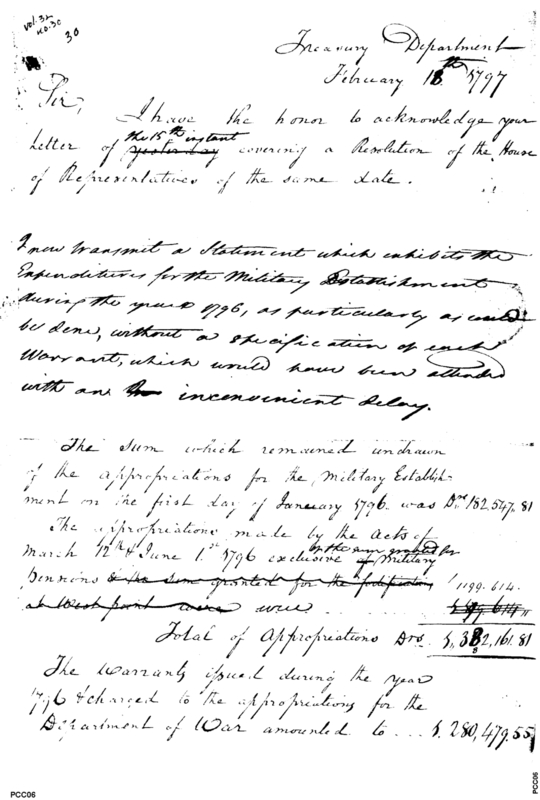 vol. 32
no. 30
30
Treasury Department
February 18th 1797
Sir,
I have the honor to acknowledge your
the 15th instant
Letter of yesterday covering a Resolution of the House
of Representatives of the same date.
I now transmit a Statement which exhibits the
Expenditures for the Military Establishment
during the year 1796, as particularly as could
be done, without a specification of each
Warrant, which would have been attended
with an inconvenient delay.
The Sum which remained undrawn
of the appropriations for the Military Establish-
ment on the first day of January 1796. was Drs 182,547.81
The appropriations made by the Acts of
March 12th & June 1st 1796 exclusive of Military
Pensions & the sum granted for the fortifications
at West point were were ... 1199.614.
Total of Appropriations Drs 1,382,161.81
The Warrants issued during the year
1796 & charged to the appropriations for the
Department of War amounted to ... 1.280,479.55
PCC06
PCC06